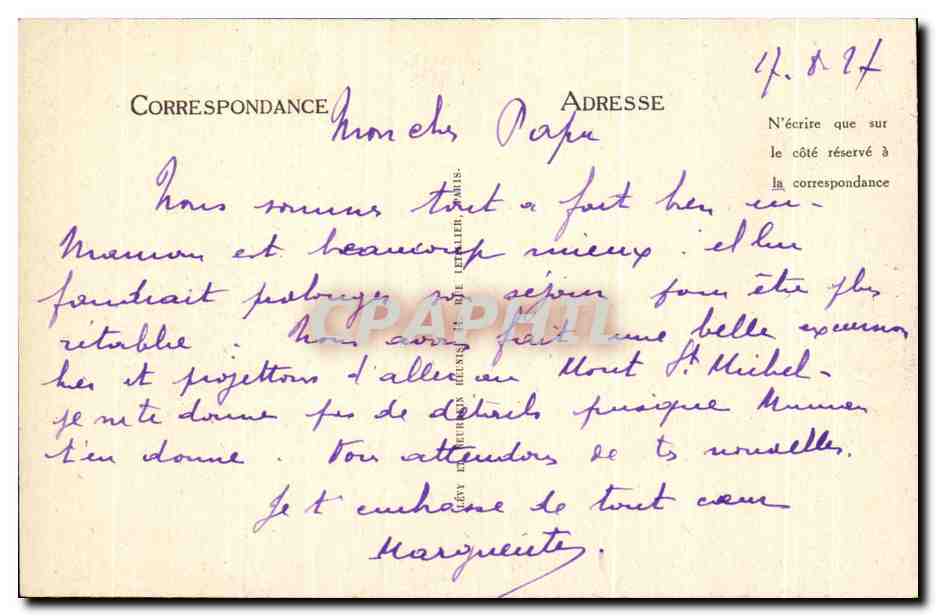 17.8.27
CORRESPONDANCE
ADRESSE
N'écrire que sur
le côté réservé à
la correspondance
Mon cher Papa
Nous sommes tout a fait bien
Maman est beaucoup mieux. il lui
faudrait prolonger son séjour pour être plus
rétablie. Nous avons fait une belle excursion
hier et projettons d'aller au Mont St Michel-
je ne te donne pas de détails puisque Maman
t'en donne. Nous attendons de tes nouvelles.
Je t'embrasse de tout cœur
Marguerite.
LÉVY ET NEURDEIN RÉUNIS, 44 RUE LETELLIER, PARIS-
CPAPHIL